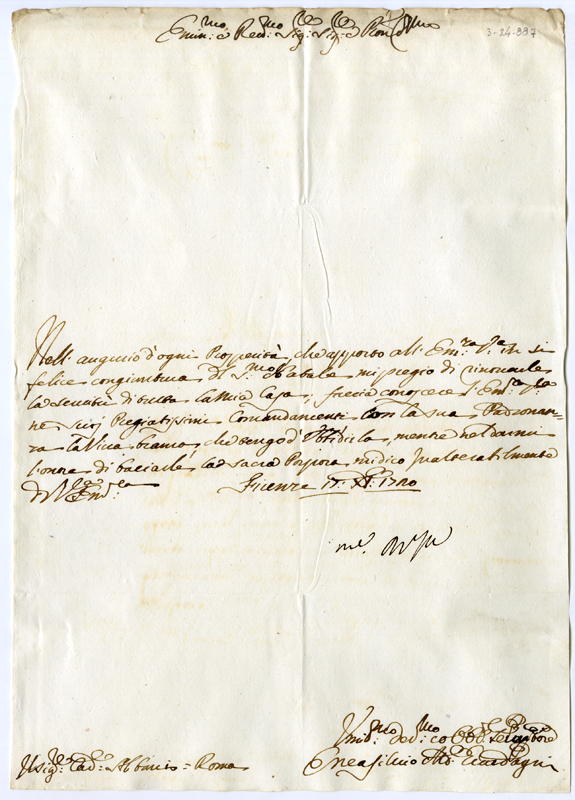 Em:mo e Rev:mo Sig:re Sig:re e Pron Co:mo
3-24-337
Nell' augurio d'ogni Prosperità, che apporto all' Em:za V:ra in si
felice congiuntura di S:mo Natale mi pregio di rinovarle
la servitù di tutta la Mia Casa, faccia conoscere l' Em:za V:ra
ne suoi Pregiatissimi Comandamenti con la sua Padronan=
za la Viva brama, che tengo d' Ubidirla, mentre nel darmi
l'onore di baciarle la Sacra Porpora mi dico inalterabilmente
Di V:ra Em:za
Firenze
1720
Um:mo Dev:mo ed Obb: Servitore
Enea Silvio
Sig:re Card:
Roma